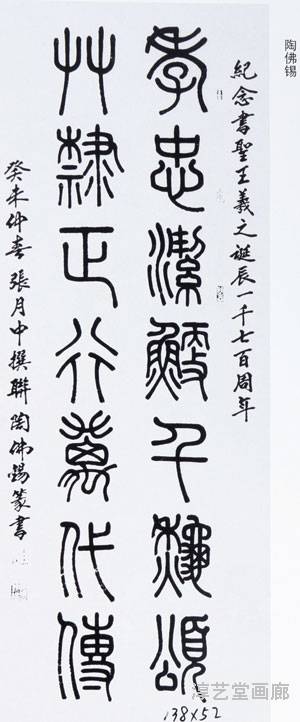 陶佛锡
紀念書聖王羲之誕辰一千七百周年
孝忠潔鯁千龝頌
艸隸正行萬代傳
癸未仲春張月中撰聯陶佛錫篆書
138×52
淳艺堂画廊